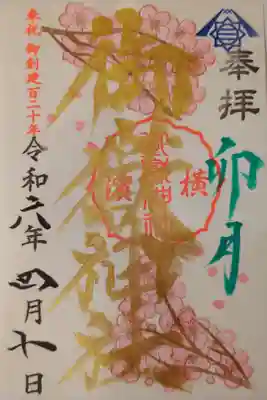 奉拝
卯月
横濱
神社
奉祝 御創建百二十年
令和六年四月十日